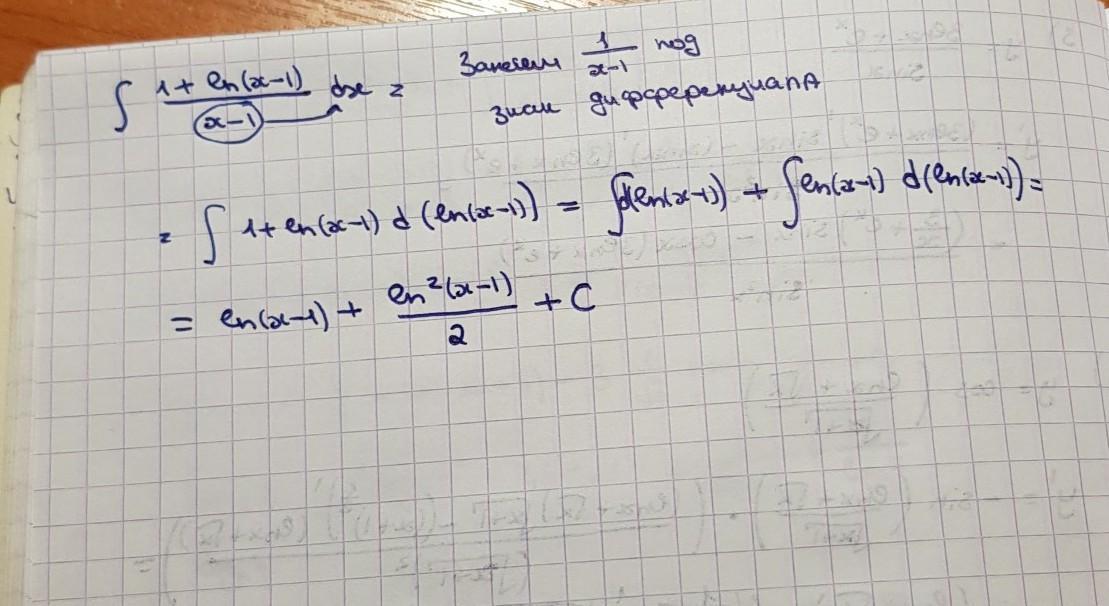 ∫ (1 + ln(x-1))/(x-1) dx = Занесем 1/(x-1) под
знак дифференциалА
= ∫ 1 + ln(x-1) d(ln(x-1)) = ∫ d(ln(x-1)) + ∫ ln(x-1) d(ln(x-1)) =
= ln(x-1) + ln²(x-1)/2 + C